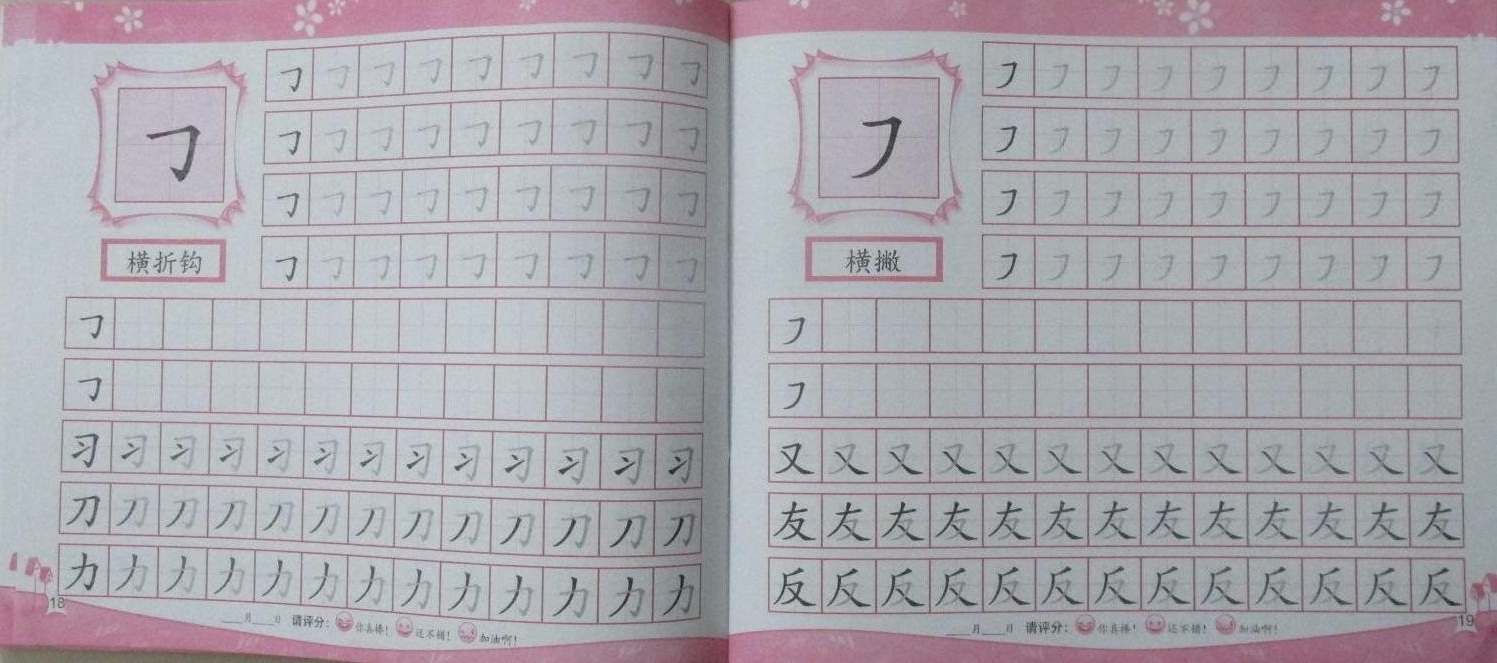 ㇆
横折钩
㇆㇆㇆㇆㇆㇆㇆㇆㇆
㇆㇆㇆㇆㇆㇆㇆㇆㇆
㇆㇆㇆㇆㇆㇆㇆㇆㇆
㇆㇆㇆㇆㇆㇆㇆㇆㇆
㇆
㇆
习习习习习习习习习习习习习
刀刀刀刀刀刀刀刀刀刀刀刀刀
力力力力力力力力力力力力力
18
____月____日 请评分： 你真棒! 还不错! 加油啊!
㇇
横撇
㇇㇇㇇㇇㇇㇇㇇㇇㇇
㇇㇇㇇㇇㇇㇇㇇㇇㇇
㇇㇇㇇㇇㇇㇇㇇㇇㇇
㇇㇇㇇㇇㇇㇇㇇㇇㇇
㇇
㇇
又又又又又又又又又又又又又
友友友友友友友友友友友友友
反反反反反反反反反反反反反
____月____日 请评分： 你真棒! 还不错! 加油啊!
19